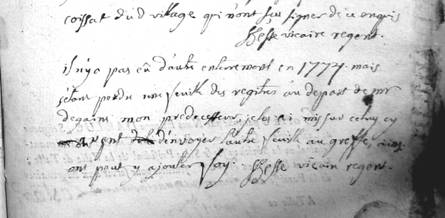 coissat dud village qui n'ont sçu signer de ce enquis
vicaire regent.
il n'y a pas eû d'autre enterrement en 1777. mais
perdu une feuille des registres au depart de mr
mon predecesseur, je les ai mis sur celuy cy
d'envoyer l'autre feuille au greffe, ains
ont peut y ajouter foy. vicaire regent.